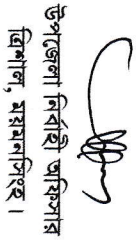 উপজেলা নির্বাহী অফিসার
ত্রিশাল, ময়মনসিংহ।